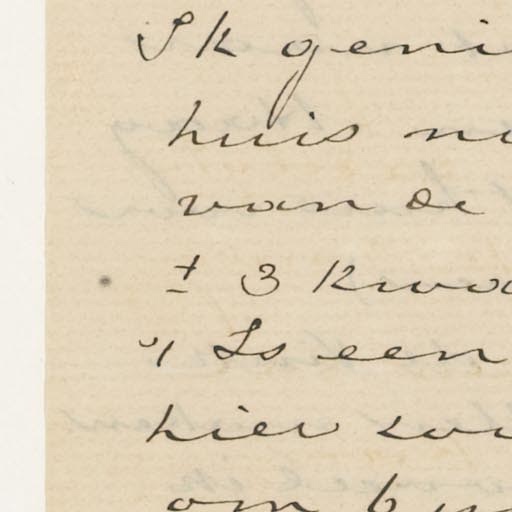 Ik geni
huis
van de
± 3 kwa
"/ Is een
hier
om 6